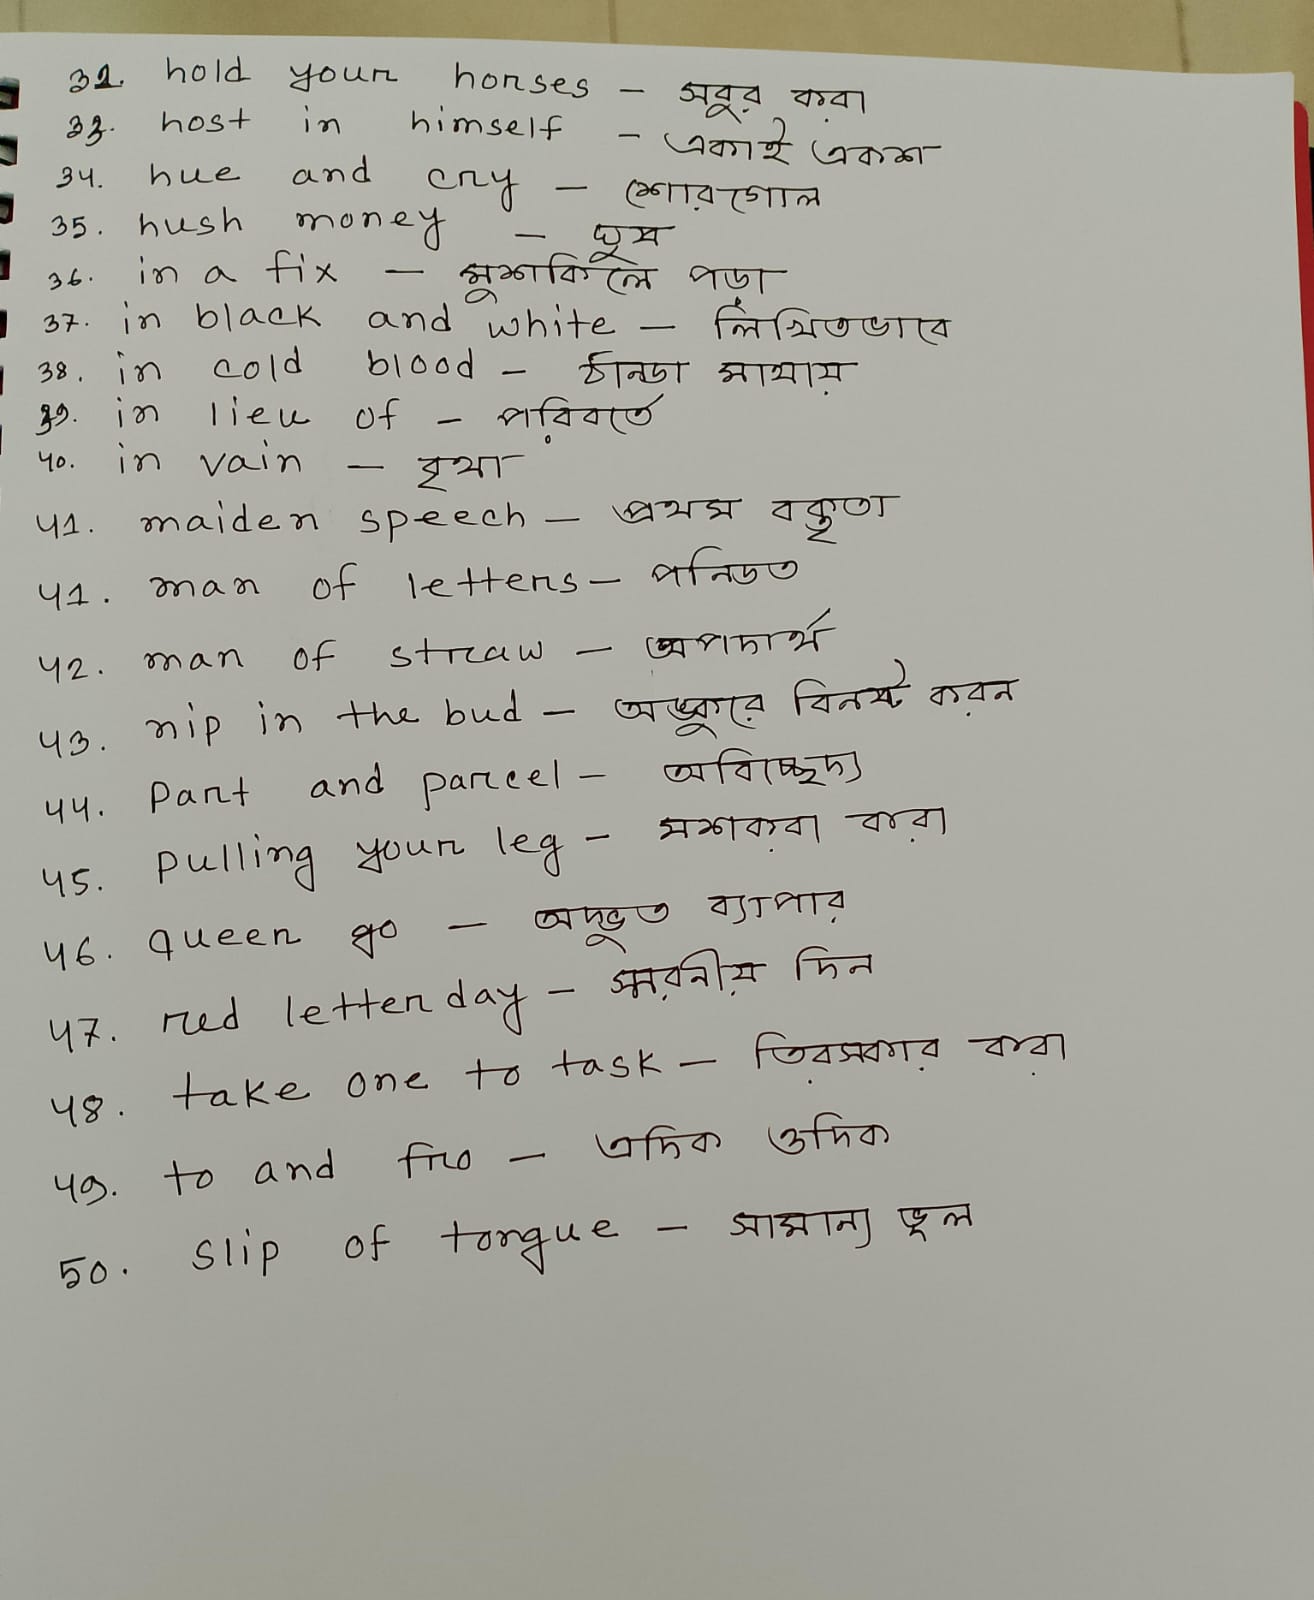 32. hold your horses - সবুর করা
33. host in himself - একাই একশ
34. hue and cry - শোরগোল
35. hush money - ঘুষ
36. in a fix - মুশকিলে পড়া
37. in black and white - লিখিতভাবে
38. in cold blood - ঠানডা মাথায়
39. in lieu of - পরিবর্তে
40. in vain - বৃথা
41. maiden speech - প্রথম বক্তৃতা
41. man of letters - পনিডত
42. man of straw - অপদার্থ
43. nip in the bud - অঙ্কুরে বিনষ্ট করন
44. Part and parcel - অবিচ্ছেদ্য
45. Pulling your leg - মশকরা করা
46. queen go - অদ্ভুত ব্যাপার
47. red letter day - স্মরনীয় দিন
48. take one to task - তিরসকার করা
49. to and fro - এদিক ওদিক
50. Slip of tongue - সামান্য ভুল